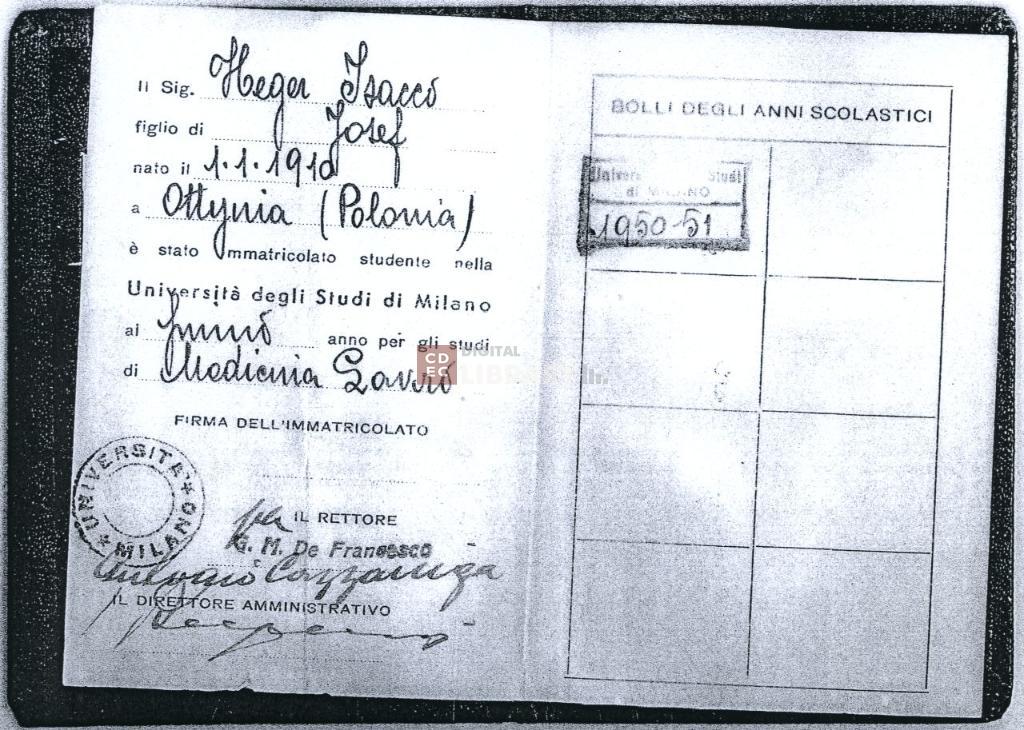 Il Sig. Heger Isacco
figlio di Josef
nato il 1.1.1910
a Ottynia (Polonia)
è stato immatricolato studente nella
Università degli Studi di Milano
al primo anno per gli studi
di Medicina Lavoro
FIRMA DELL'IMMATRICOLATO
UNIVERSITA' * MILANO *
per IL RETTORE
G. M. De Francesco
Antonio Cazzaniga
IL DIRETTORE AMMINISTRATIVO
BOLLI DEGLI ANNI SCOLASTICI
Univers Studi
di MILANO
1950-51
CDEC DIGITAL
LIBRARY